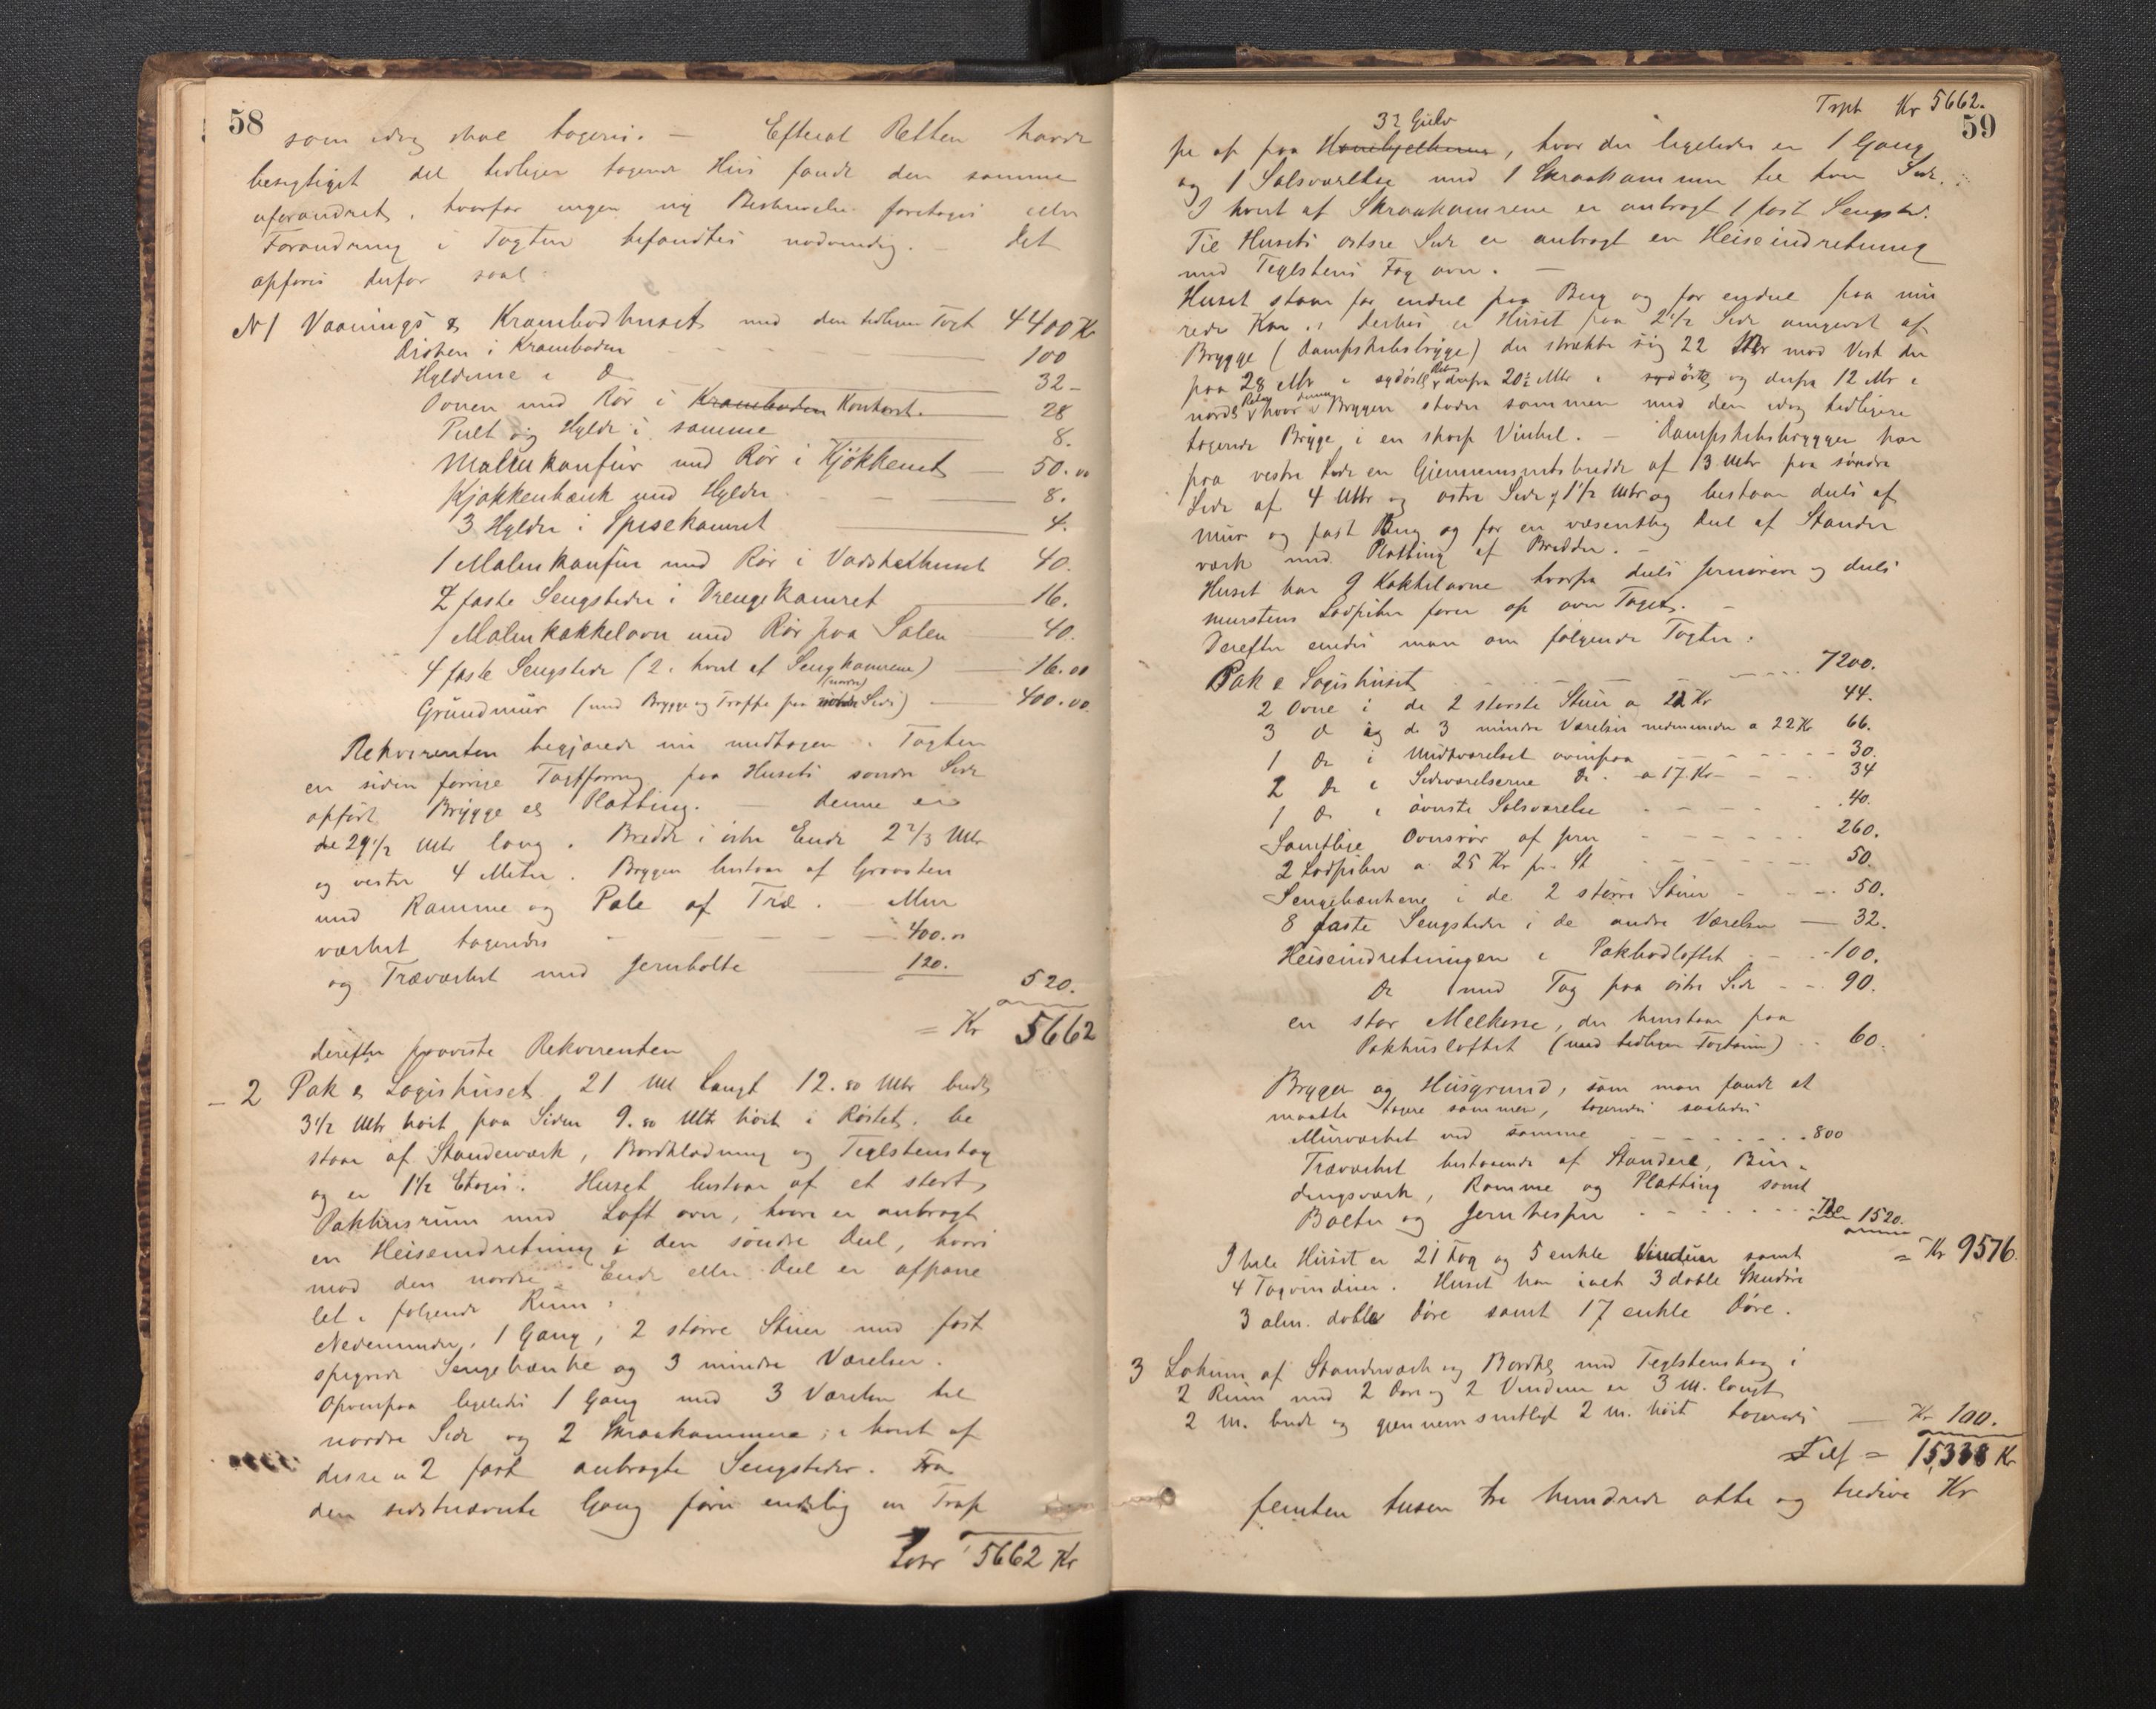 58
som idag skal taxeres. — Efterat Retten havde
besigtiget det tidligere taxerede Hus fandt den samme
uforandret, hvorfor ingen ny Beskrivelse foretoges eller
Forandring i Taxten befandtes nødvendig. — Det
opføres derfor saal:
N 1 Vaanings & Krambodhuset med den tidligere Taxt 4400 Kr
Disken i Kramboden 100
Hylderne i Do 32 -
Ovnen med Rør i Kramboden Kontoret. 28
Pult og Hylde i samme 8.
Malmkomfur med Rør i Kjøkkenet 50.00
Kjøkkenbænk med Hylder 8.
3 Hylder i Spisekamret 4.
1 Malmkomfur med Rør i Vadskehuset 40.
2 faste Sengsteder i Drengekamret 16.
1 Malmkakkelovn med Rør paa Salen 40.
4 faste Sengstede (2 i hvert af Sengkamrene) 16.00
Grundmur (med Brygge og Trappe paa nordre Side) 400.00.
Rekvirenten begjærede nu medtagen i Taxten
en siden forrige Taxtforrng paa Husets søndre Side
opført Brygge el Platting. — Denne er
29 1/2 Mtr lang. Bredde i østre Ende 2 2/3 Mtr
og vestre 4 Meter. Bryggen bestaar af Graasten
med Ramme og Pæle af Træ. — Mur
værket taxeredes 400.00
og Træværket med Jernbolte 120.
520.
= Kr 5662
derefter paaviste Rekvirenten
- 2 Pak & Logishuset 21 Mtr Langt 12.80 Mtr bredt
3 1/2 Mtr høit paa Siden 9.80 Mtr høit i Røstet. be
staar af Standerværk, Bordklædning og Teglstenstag
og er 1 1/2 Etages. Huset bestaar af et stort
Pakhusrum med Loft over, hvori er anbragt
en Heiseindretning i den søndre Deel, hvori
mod den nordre Ende eller Deel er afpane
let i følgende Rum:
Nedenunder, 1 Gang, 2 større Stuer med fast
spigrede Sengebænke og 3 mindre Værelser.
Ovenpaa ligeledes 1 Gang med 3 Værelser til
nordre Side og 2 Skraakammere; i hvert af
disse er 2 fast anbragte Sengsteder. Fra
den sidstnævnte Gang fører endelig en Trap
Lavr 5662 Kr
Trspt Kr 5662.
59
32 Gulv
pe op paa Hanebjelkerne, hvor der ligeledes er 1 Gang
og 1 Salsværelse med 1 Skraakammer til hver Side.
I hvert af Skraakamrene er anbragt 1 fast Sengsted.
Til Husets østre Side er anbragt en Heiseindretning
med Teglstens Tag over. —
Huset staar for endel paa Berg og for endel paa mu
rede Kar. Derhos er Huset paa 2 1/2 Side omgivet af
Brygge (Dampskibsbrygge) der strækker sig 22 Mtr mod Vest der
paa 28 Mtr i sydøstl Retn derfra 20 1/2 Mtr i sydøstl og derfra 12 Mtr i
nordl Retn hvor denne Bryggen støder sammen med den idag tidligere
taxerede Brygge i en skarp Vinkel. — Dampskibsbryggen har
paa vestre Side en Gjennemsnitsbredde af 13 Mtr paa søndre
Side af 4 Mtr og østre Side af 1 1/2 Mtr og bestaar dels af
Mur og fast Berg og for en væsentlig Del af Stander
værk med Platting af Bredder. —
Huset har 9 Kakkelovne hvorfra dels Jernrør og dels
Murstens Ladpiber fører op over Taget. —
Derefter enedes man om følgende Taxter:
Pak & Logishuset 7200.
2 Ovne i de 2 største Stuer a 22 Kr 44.
3 do i de 3 mindre Værelser nedenunder a 22 Kr 66.
1 Do i Midtværelset ovenpaa 30.
2 Do i Sideværelserne Do - a 17 Kr 34
1 Do i øverste Salsværelse 40.
Samtlige Ovnsrør af Jern 260.
2 Ladpiber a 25 Kr pr. St 50.
Sengebænkene i de 2 større Stuer 50.
8 faste Sengsteder i de andre Værelser 32.
Heiseindretningen i Pakbodloftet 100.
Do med Tag paa østre Side 90.
en stor Melkasse, der henstaar paa
Pakhusloftet (med tidligere Taxtsum) 60.
Brygge og Husgrund, som man fandt at
maatte taxere sammen, taxeredes saaledes
Murværket ved samme 800
Træværket bestaaende af Standere, Bin-
dingsværk, Ramme og Platting samt
Bolter og Jernhesper 720 1520.
= Kr 9576.
I hele Huset er 21 Fag og 5 enkle Vinduer samt
4 Tagvinduer. Huset har ialt 3 doble Skudøre
3 alm. doble Døre samt 17 enkle Døre.
3 Lokum af Standerværk og Bordkl med Teglstenstag i
2 Rum med 2 Døre og 2 Vinduer er 3 M. langt
2 M. bredt og gjennemsnitligt 2 M. høit taxeredes Kr 100.
Tils = 15,338 Kr
femten tusen tre hundrede otte og tredive Kr